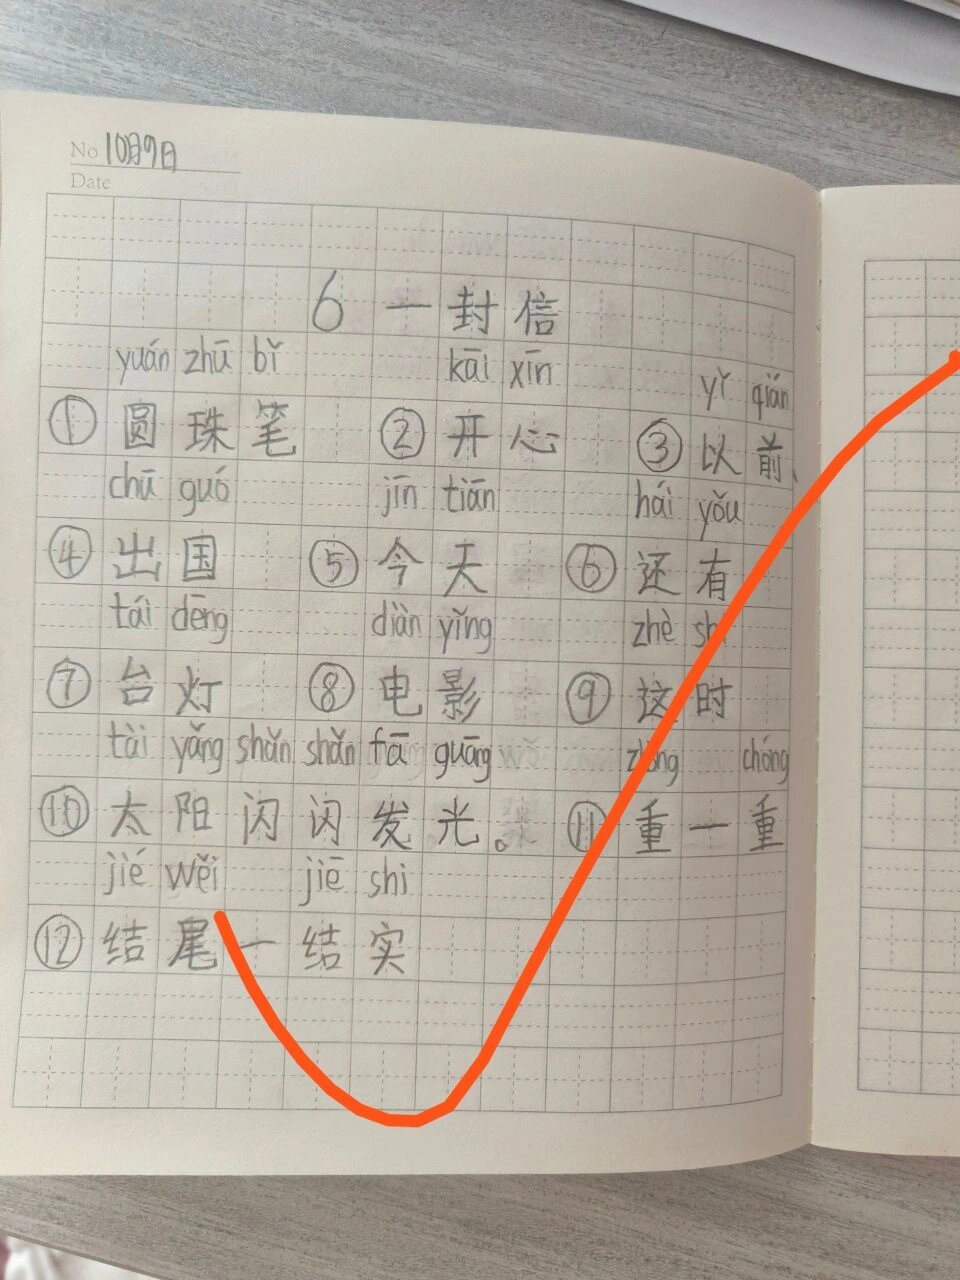 No 10月9日
Date
6 一封信
yuán zhū bǐ kāi xīn yǐ qián
① 圆珠笔 ② 开心 ③ 以前、
chū guó jīn tiān hái yǒu
④ 出国 ⑤ 今天 ⑥ 还有
tái dēng diàn yǐng zhè shí
⑦ 台灯 ⑧ 电影 ⑨ 这时
tài yǎng shǎn shǎn fā guāng chóng
⑩ 太阳闪闪发光。 ⑪ 重一重
jié wěi jiē shi
⑫ 结尾一结实